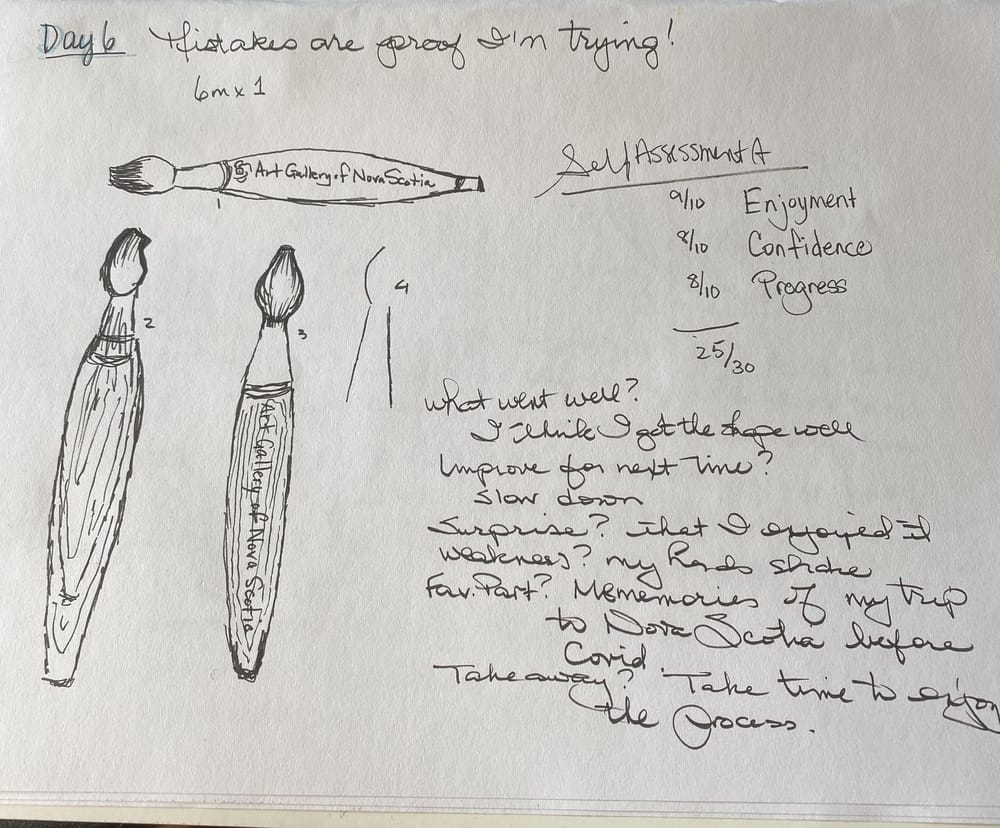 Day 6 Mistakes are proof I'm trying!
6m x 1
Art Gallery of Nova Scotia
1
Self Assessment A
9/10 Enjoyment
8/10 Confidence
8/10 Progress
25/30
2
3
4
Art Gallery of Nova Scotia
What went well?
I think I got the shape well
Improve for next time?
Slow down
Surprise? that I enjoyed it
weakness? my hands shake
Fav. Part? Mememories of my trip
to Nova Scotia before
Covid.
Takeaway? Take time to enjoy
the process.